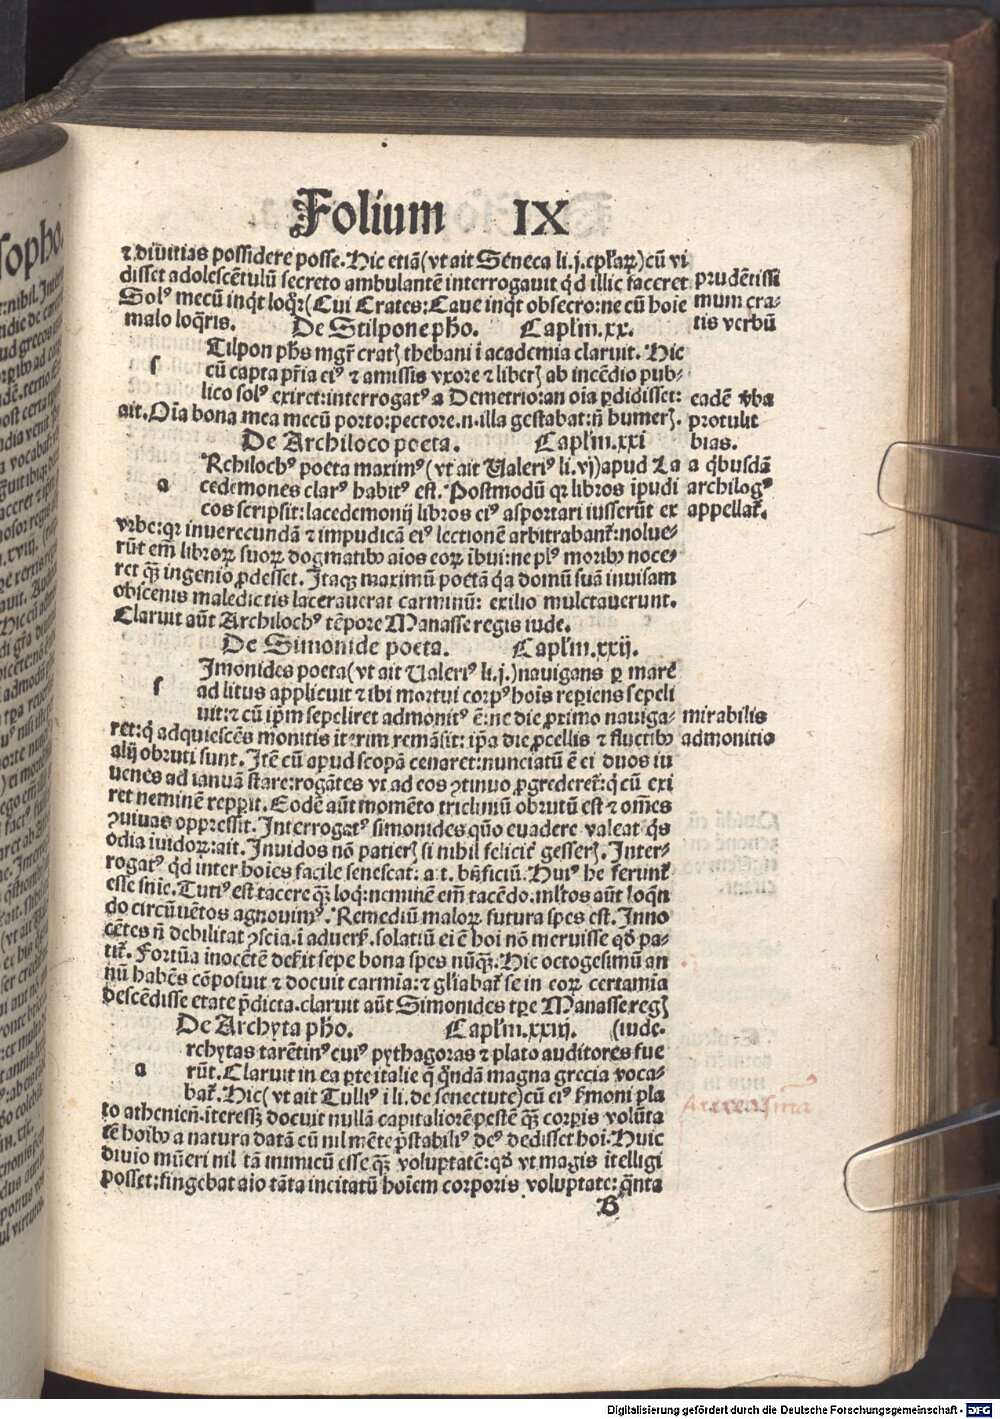 Folium IX
⁊ diuitias possidere posse. Hic etiā (vt ait Seneca li.j.ep̄larꝝ) cū vi
disset adolescētulū secreto ambulantē interrogauit qd illic faceret
Solꝰ mecū inqt loqr (Cui Crates: Caue inqt obsecro: ne cū hoīe
malo loqris. De Stilpone pho. Caplm.xx.
prudētissi
mum cra-
tis verbū
Tilpon phs mgr̄ cratꝭ thebani ī academia claruit. Hic
s cū capta pr̄ia eiꝰ ⁊ amissis vxore ⁊ liberꝭ ab incēdio pub-
lico solꝰ exiret: interrogatꝰ a Demetrio: an oīa ꝑdidisset:
ait. Oīa bona mea mecū porto: pectore.n. illa gestabat: n̄ humerꝭ.
eadē v̄ba
protulit
bias.
De Archiloco poeta. Caplm.xxi
Rchilochꝰ poeta maximꝰ (vt ait Valeriꝰ li.vj) apud La
a cedemones clarꝰ habitꝰ est. Postmodū qr libros ipudi
cos scripsit: lacedemonij libros eiꝰ asportari iusserūt ex
a qbusdā
archilogꝰ
appellat̄.
vrbe: qr inuerecundā ⁊ impudicā eiꝰ lectionē arbitrabant̄: nolue-
rūt em̄ librorꝝ suorꝝ dogmatibꝰ aīos eorꝝ ībui: ne plꝰ moribꝰ noce-
ret qꝫ ingenio ꝓdesset. Itaqꝫ maximū poetā qa domū suā inuisam
obscenis maledictis lacerauerat carminū: exilio mulctauerunt.
Claruit aūt Archilochꝰ tēpore Manasse regis iude.
De Simonide poeta. Caplm.xxij.
Imonides poeta (vt ait Valeriꝰ li.j.) nauigans ꝑ mare
s ad litus applicuit ⁊ ibi mortui corpꝰ hoīs reperiens sepeli
uit: ⁊ cū ipm̄ sepeliret admonitꝰ ē: ne die ꝓximo nauiga-
ret: q adquiescēs monitis iterim remāsit: ip̄a die ꝓcellis ⁊ fluctibꝰ
mirabilis
admonitio
alij obruti sunt. Itē cū apud scopā cenaret: nunciatū ē ei duos iu
uenes ad ianuā stare: rogātes vt ad eos ꝯtinuo ꝓgrederet̄: q cū exi
ret neminē repperit. Eodē aūt momēto tricliniū obrutū est ⁊ om̄es
ꝯuiuas oppressit. Interrogatꝰ simonides quō euadere valeat qs
odia iuidorꝝ: ait. Inuidos nō patierꝭ si nihil felicit̄ gesserꝭ. Inter-
rogatꝰ qd inter hoīes facile senescat: ait. bn̄ficiū. Huiꝰ he ferunt̄
esse sn̄ie. Tutiꝰ est tacere qꝫ loq: neminē em̄ tacēdo. mltos aūt loqn̄
do circūuētos agnouimꝰ. Remediū malorꝝ futura spes est. Inno
cētes n̄ debilitat ꝯscīa. ī aduersꝭ. solatiū ei ē hoi nō meruisse qd pa-
tit̄. Fortūa inocētē deserit sepe bona spes nūqꝫ. Hic octogesimū an
nū habēs cōposuit ⁊ docuit carmīa: ⁊ gliabat̄ se in eorꝝ certamīa
descēdisse etate pr̄dicta. claruit aūt Simonides tpre Manasse regꝭ
(iude.
De Archyta pho. Caplm.xxiij.
rchytas tarētinꝰ cuiꝰ pythagoras ⁊ plato auditores fue
a rūt. Claruit in ea ꝑte italie q̄ qndā magna grecia voca-
bat̄. Hic (vt ait Tulliꝰ ī li. de senectute) cū eiꝰ s̄moni pla
to athenien̄. iteressꝫ docuit nullā capitaliorē pestē qꝫ corꝑis volūta
tē hoībꝰ a natura datā cū nil mēte pr̄stabiliꝰ deꝰ dedisset hoi. Huic
diuīo mūeri nil tā inimicū esse qꝫ voluptatē: qd vt magis ītelligi
posset: fingebat aīo tāta incitatū hoīem corporis voluptate: qnta
B
Digitalisierung gefördert durch die Deutsche Forschungsgemeinschaft - DFG